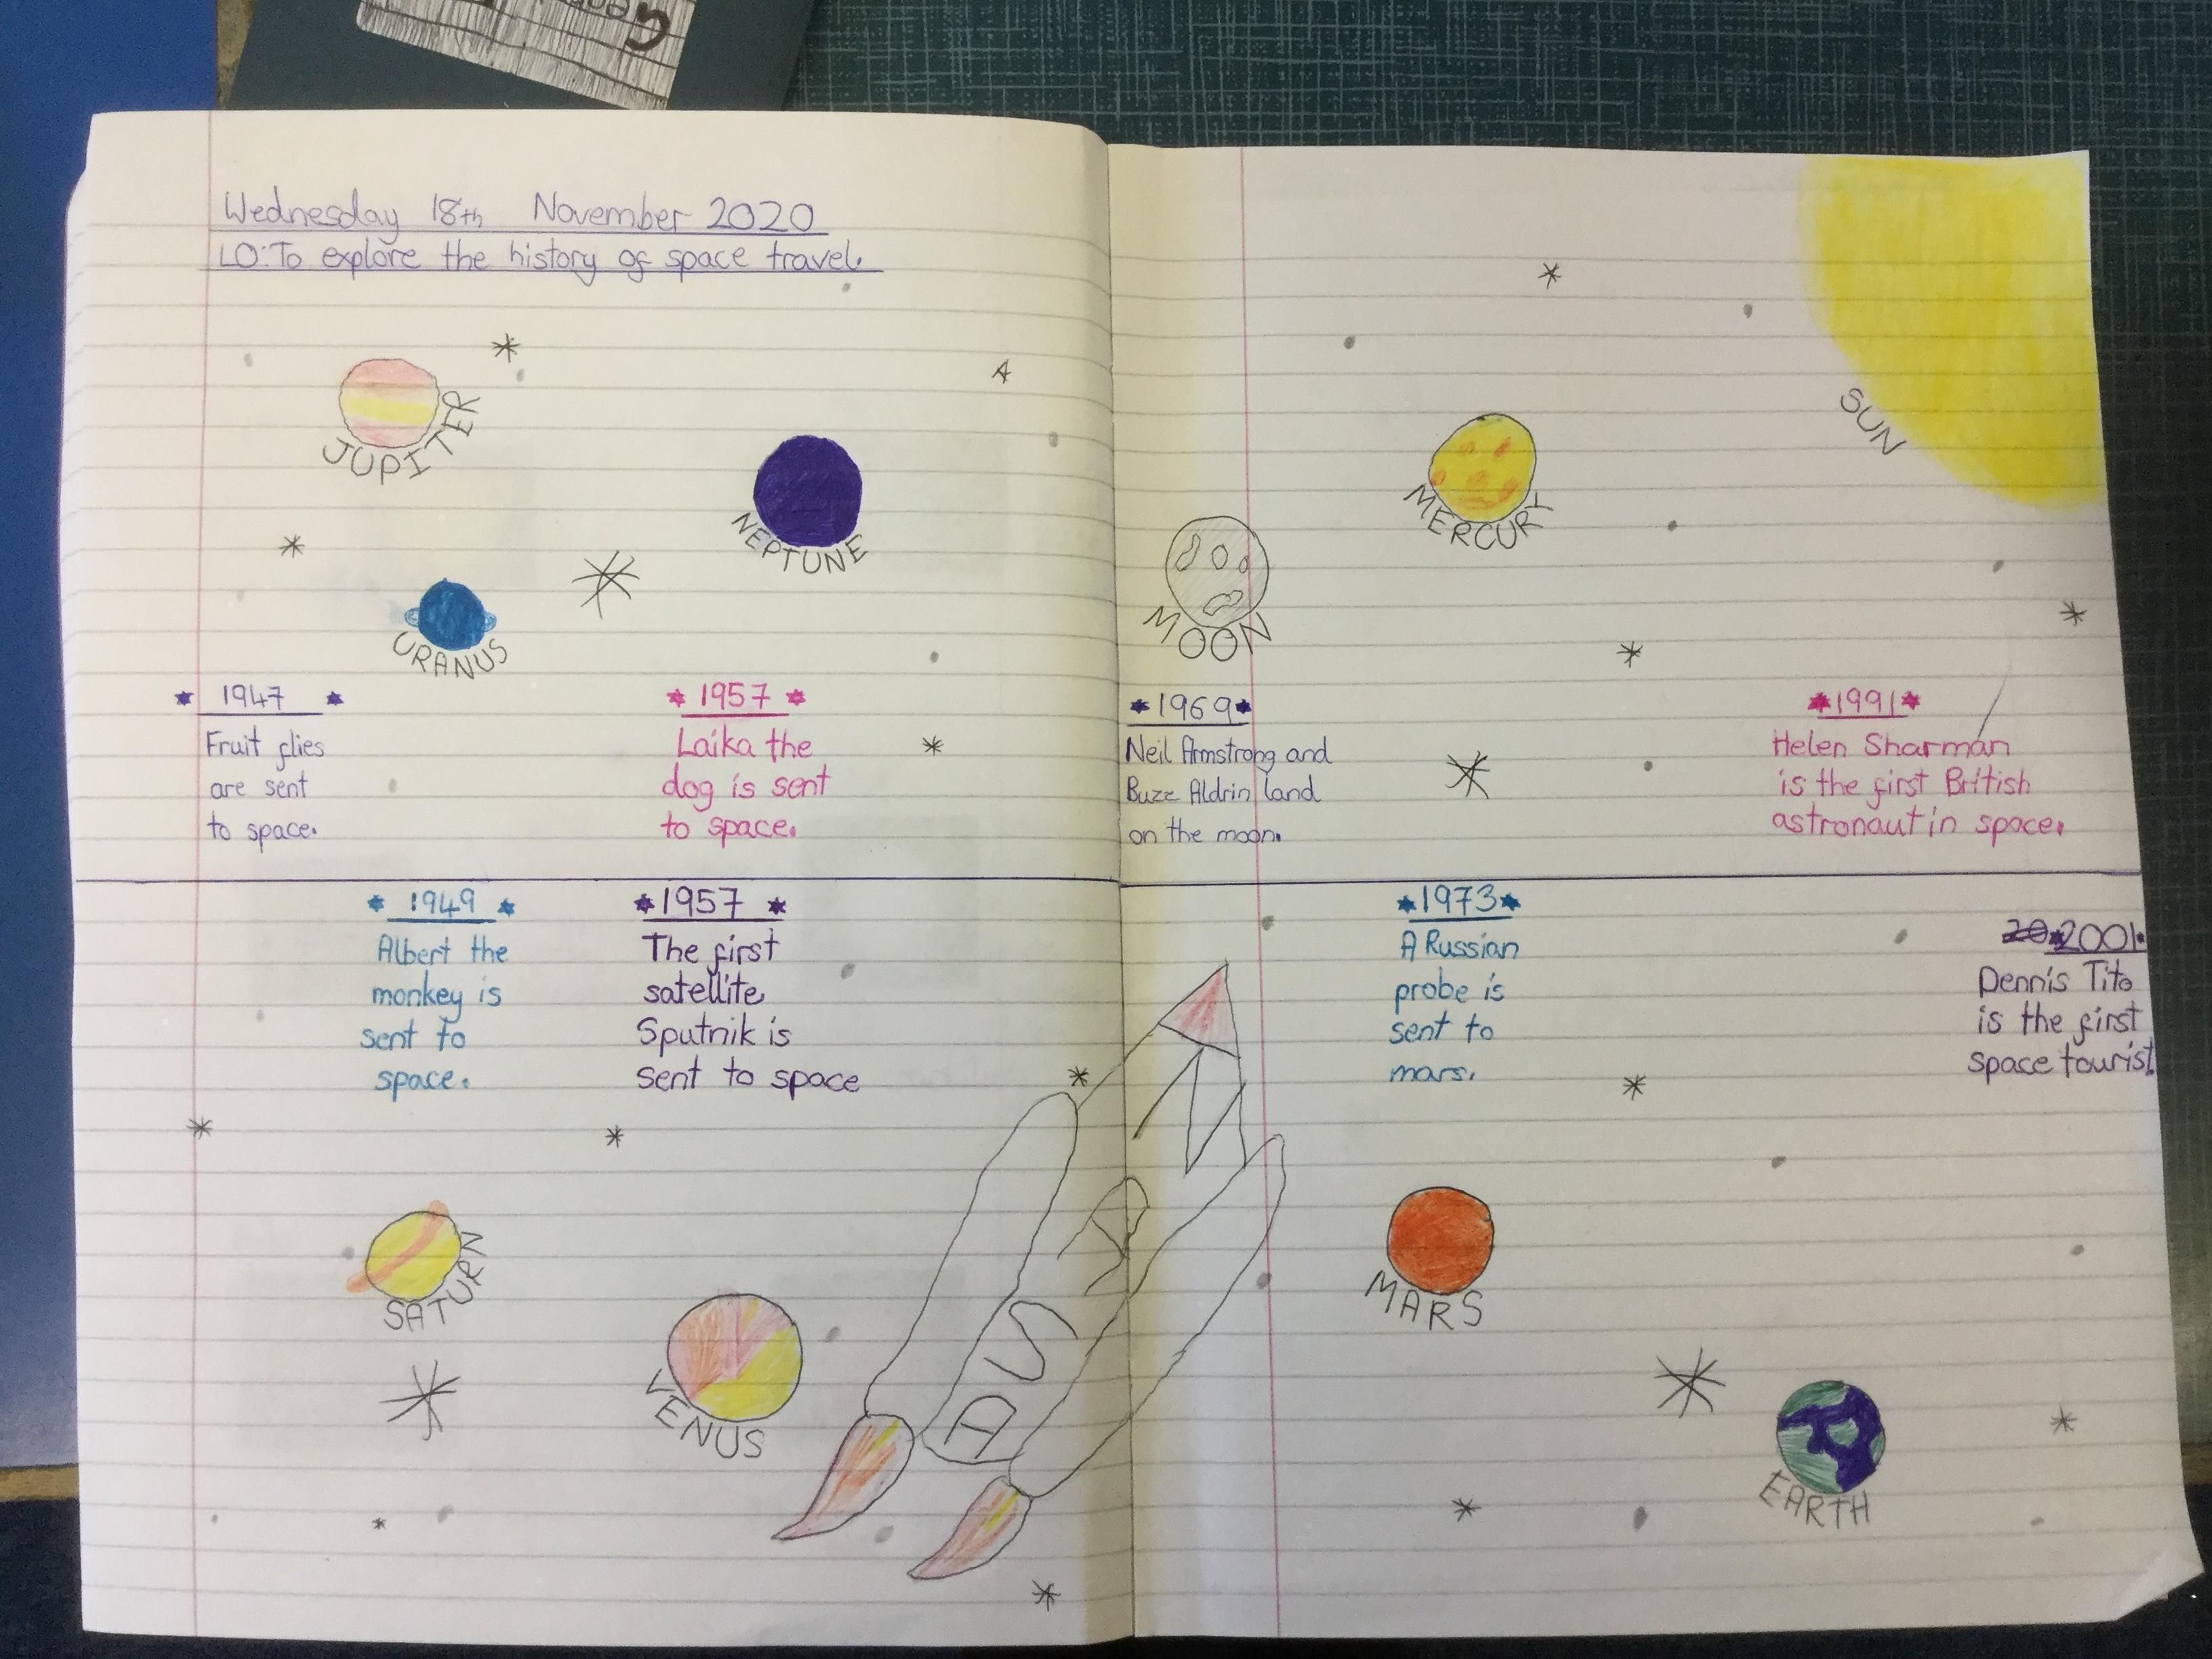 Wednesday 18th November 2020
LO:To explore the history of space travel.
JUPITER
NEPTUNE
URANUS
SUN
MERCURY
MOON
1947
Fruit flies
are sent
to space.
1957
Laika the
dog is sent
to space.
1969
Neil Armstrong and
Buzz Aldrin land
on the moon.
1991
Helen Sharman
is the first British
astronaut in space.
1949
Albert the
monkey is
sent to
space.
1957
The first
satellite
Sputnik is
sent to space
1973
A Russian
probe is
sent to
mars.
2001
Dennis Tito
is the first
space tourist.
SATURN
VENUS
MARS
EARTH